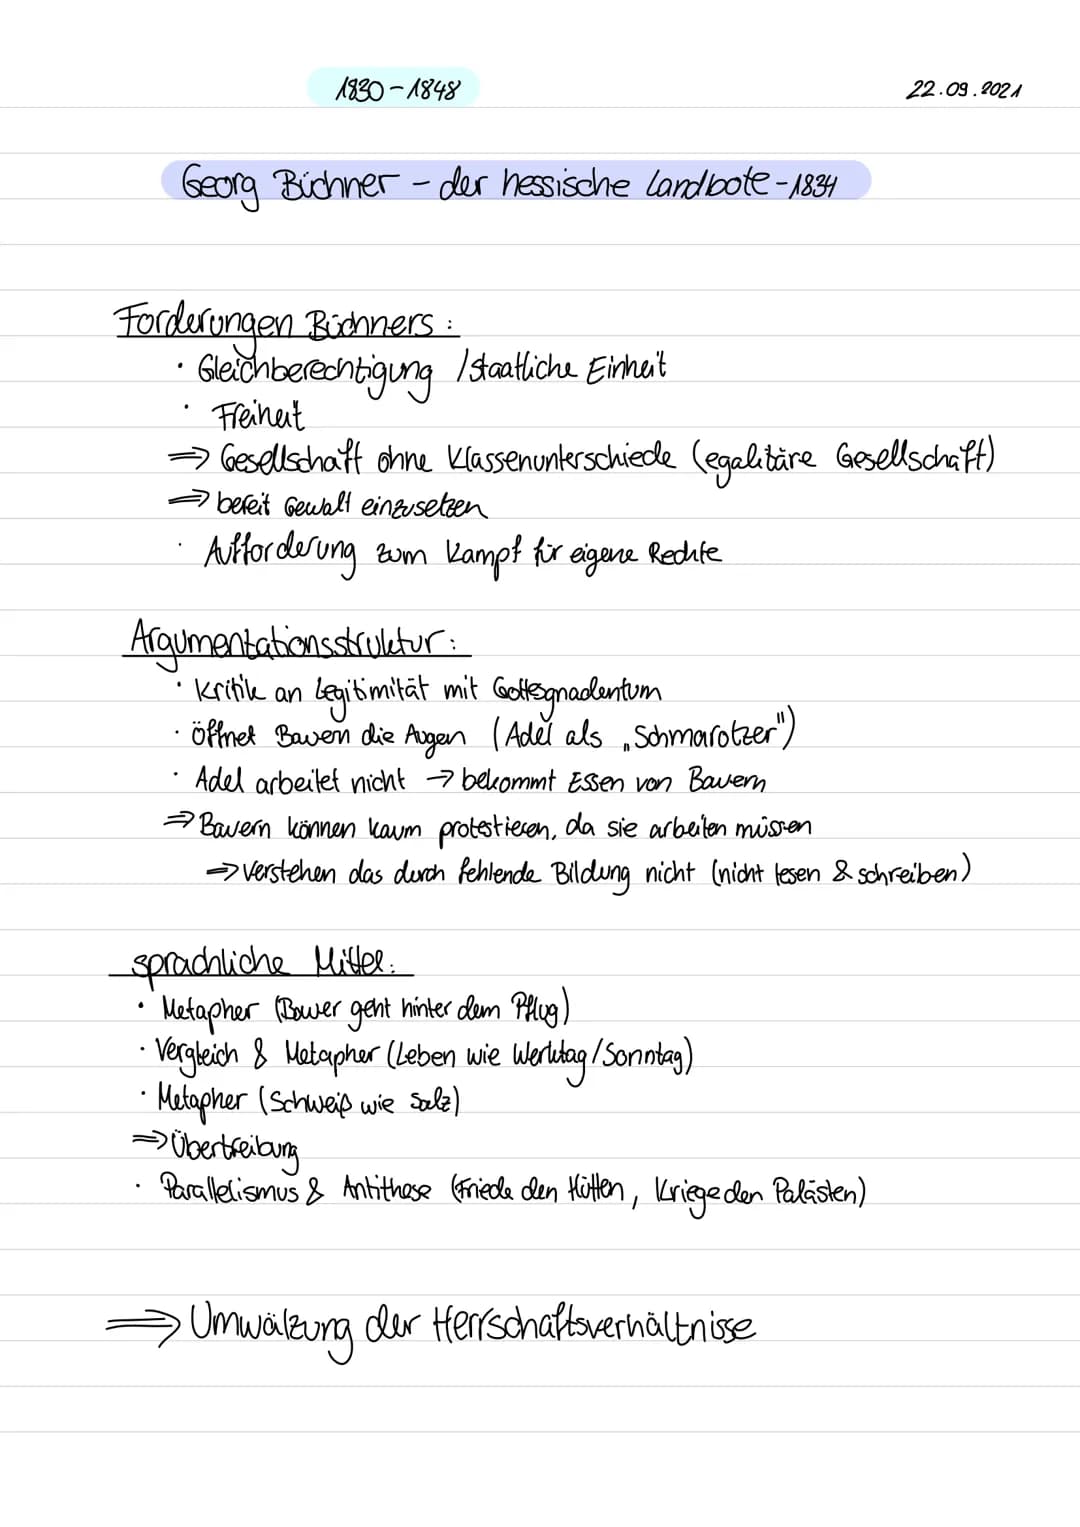 1830-1848
22.09.2021
Georg Büchner - der hessische Landbote - 1834
Forderungen Büchners:
· Gleichberechtigung / staatliche Einheit
· Freiheit
⇒ Gesellschaft ohne Klassenunterschiede (egalitäre Gesellschaft)
⇒ bereit Gewalt einzusetzen
· Aufforderung zum Kampf für eigene Rechte
Argumentationsstruktur:
· Kritik an Legitimität mit Gottesgnadentum
· öffnet Bauern die Augen (Adel als „Schmarotzer")
· Adel arbeitet nicht → bekommt Essen von Bauern
⇒ Bauern können kaum protestieren, da sie arbeiten müssen
⇒ verstehen das durch fehlende Bildung nicht (nicht lesen & schreiben)
sprachliche Mittel:
· Metapher (Bauer geht hinter dem Pflug)
· Vergleich & Metapher (Leben wie Werktag/Sonntag)
· Metapher (Schweiß wie Salz)
⇒ Übertreibung
· Parallelismus & Antithese (Friede den Hütten, Kriege den Palästen)
⇒ Umwälzung der Herrschaftsverhältnisse